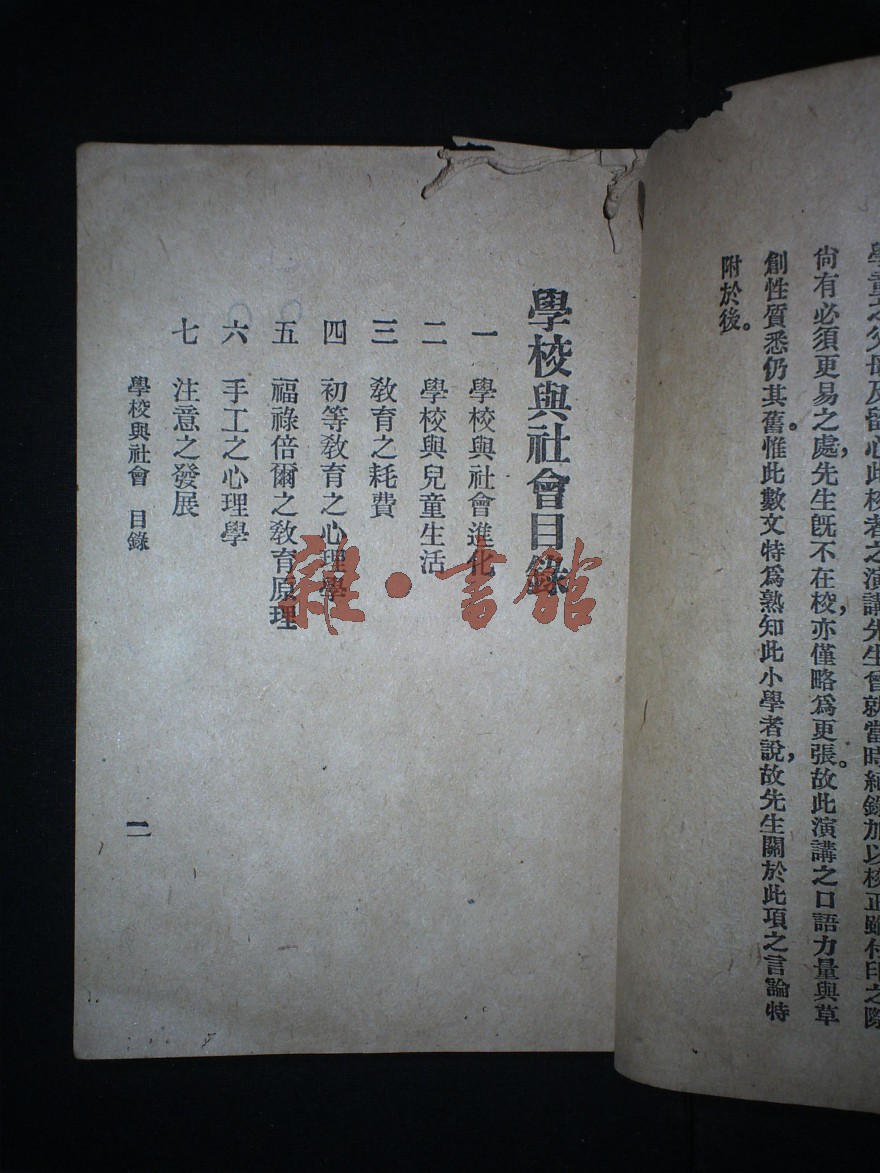 學童之父母及留心此校者之演講先生會就當時紀錄加以校正雖付印之際
尙有必須更易之處，先生旣不在校，亦僅略爲更張。故此演講之口語力量與草
創性質悉仍其舊。惟此數文特爲熟知此小學者說，故先生關於此項之言論特
附於後。
學校與社會目錄
一 學校與社會進化
二 學校與兒童生活
三 敎育之耗費
四 初等敎育之心理學
五 福祿倍爾之敎育原理
六 手工之心理學
七 注意之發展
學校與社會 目錄
一
雜·書館